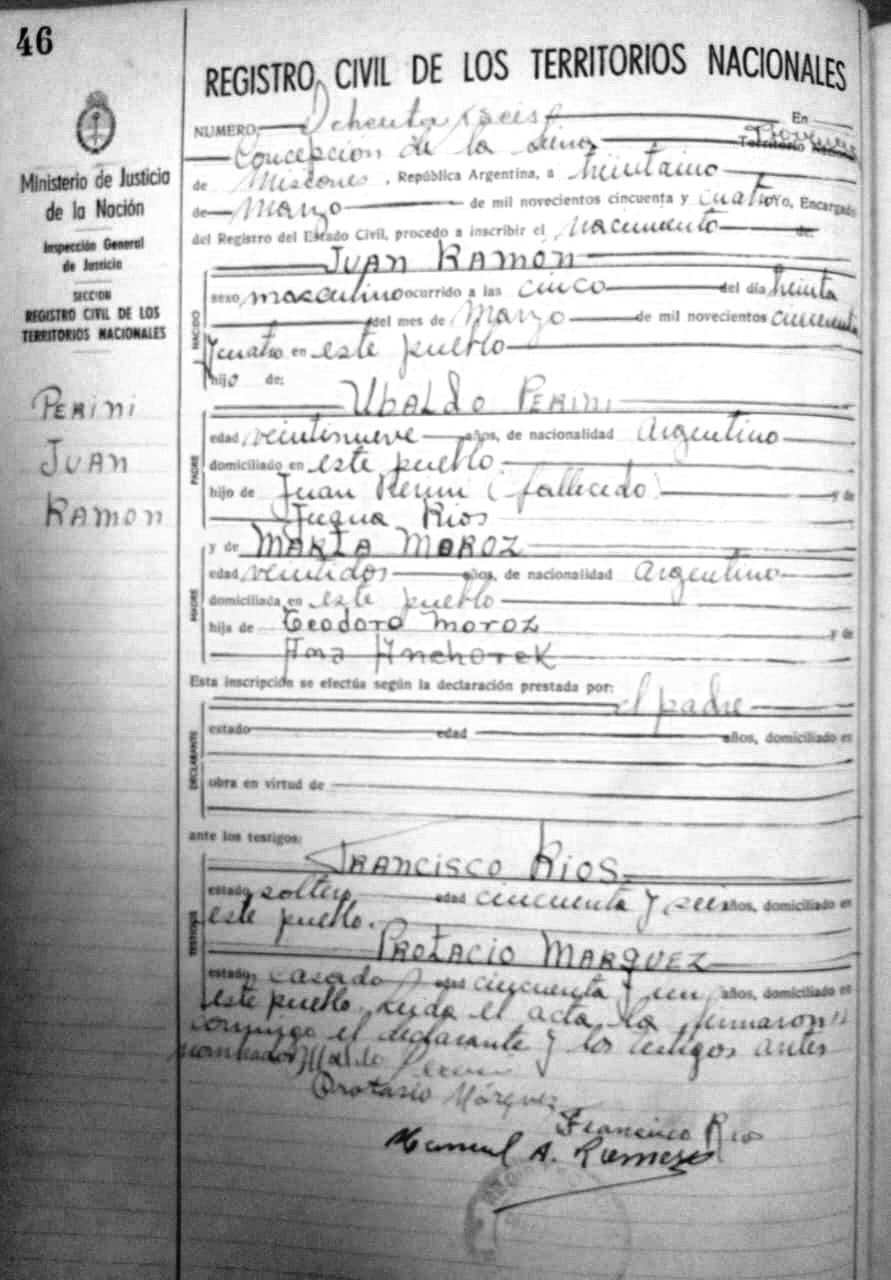 46
REGISTRO CIVIL DE LOS TERRITORIOS NACIONALES
Ministerio de Justicia
de la Nación
Inspección General
de Justicia
SECCION
REGISTRO CIVIL DE LOS
TERRITORIOS NACIONALES
Perini
Juan
Ramon
NUMERO: Ochenta y seis En
Concepcion de la Sierra Territorio
de Misiones, República Argentina, a treintaiuno
de Marzo de mil novecientos cincuenta y cuatro Yo, Encargado
del Registro del Estado Civil, procedo a inscribir el nacimiento de:
JUAN RAMON
NACIDO
sexo masculino ocurrido a las cinco del día treinta
del mes de Marzo de mil novecientos cincuenta
y cuatro en este pueblo
hijo de:
UBALDO PERINI
PADRE
edad veintinueve años, de nacionalidad Argentino
domiciliado en este pueblo
hijo de Juan Perini (fallecido) y de
Rios
y de MARIA MOROZ
MADRE
edad veintidos años, de nacionalidad Argentino
domiciliada en este pueblo
hija de Teodoro Moroz y de
Ana Anchorek
Esta inscripción se efectúa según la declaración prestada por: el padre
DECLARANTE
estado edad años, domiciliado en
obra en virtud de
ante los testigos:
FRANCISCO RIOS
TESTIGOS
estado soltero edad cincuenta y seis años, domiciliado en
este pueblo.
PROTACIO MARQUEZ
estado casado edad cincuenta y un años, domiciliado en
este pueblo. Leida el acta la firmaron
conmigo el declarante y los testigos antes
nombrados Ubaldo Perini
Protasio Márquez
Francisco Rios
Manuel A. Romero